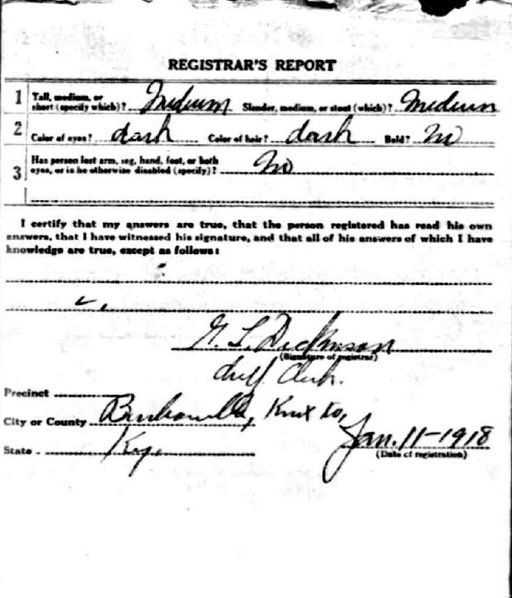 REGISTRAR'S REPORT
1 Tall, medium, or short (specify which)? Medium Slender, medium, or stout (which)? Medium
2 Color of eyes? dark Color of hair? dark Bald? No
3 Has person lost arm, leg, hand, foot, or both eyes, or is he otherwise disabled (specify)? No
I certify that my answers are true, that the person registered has read his own
answers, that I have witnessed his signature, and that all of his answers of which I have
knowledge are true, except as follows:
Dickinson
(Signature of registrar)
Clerk.
Precinct
City or County Barbourville, Knox Co,
State Ky.
Jan. 11-1918
(Date of registration)